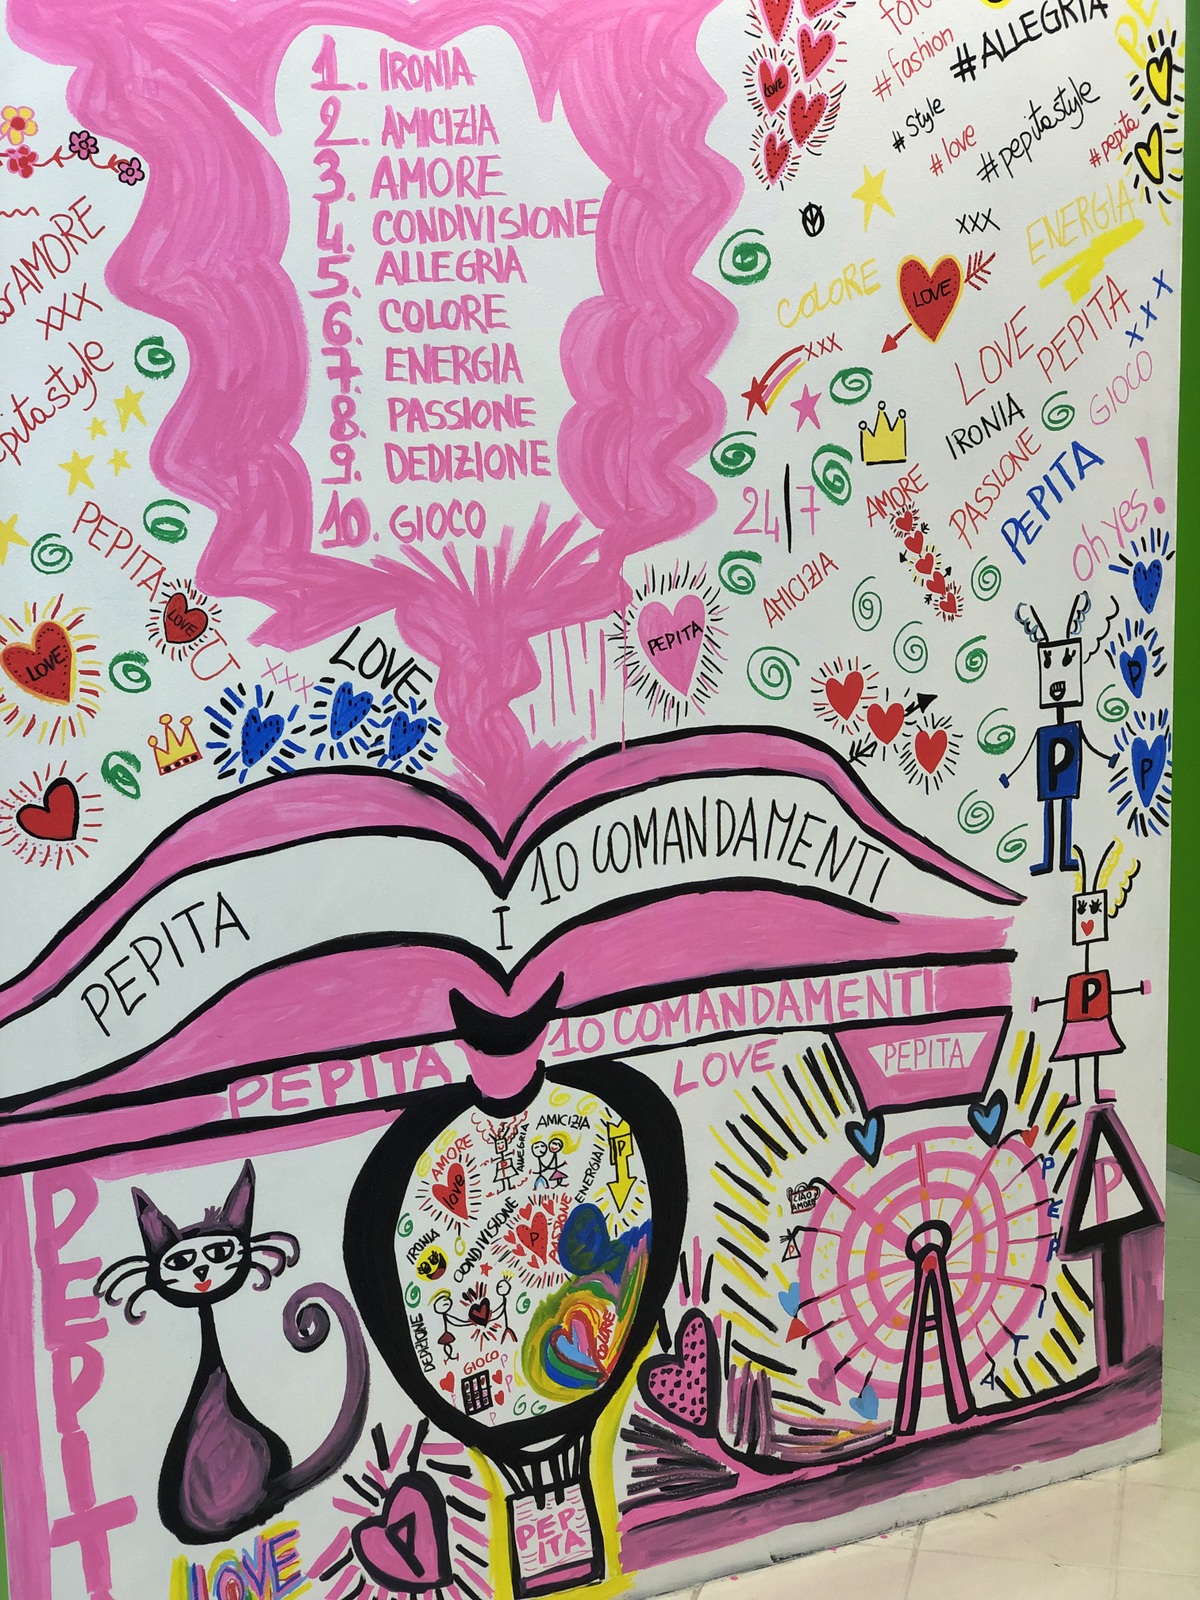 1. IRONIA
2. AMICIZIA
3. AMORE
4. CONDIVISIONE
5. ALLEGRIA
6. COLORE
7. ENERGIA
8. PASSIONE
9. DEDIZIONE
10. GIOCO
LOVE
#fashion
#ALLEGRIA
#style
#love
#pepitastyle
#pepita
PE
xxx
ENERGIA
COLORE
LOVE
xxx
LOVE
PEPITA
xxx
IRONIA
GIOCO
24/7
AMORE
PASSIONE
PEPITA
oh yes!
AMICIZIA
PEPITA
AMORE
xxx
pitastyle
PEPITA
LOVE
LOVE
xxx
LOVE
P
P
P
P
PEPITA
I
10 COMANDAMENTI
PEPITA
10 COMANDAMENTI
LOVE
PEPITA
PEPIT
LOVE
P
AMORE
love
ALLEGRIA
AMICIZIA
ENERGIA
P
IRONIA
CONDIVISIONE
P
PASSIONE
DEDIZIONE
COLORE
GIOCO
P
P
PEP
ITA
CIAO
AMORE
P
PEPITA
P